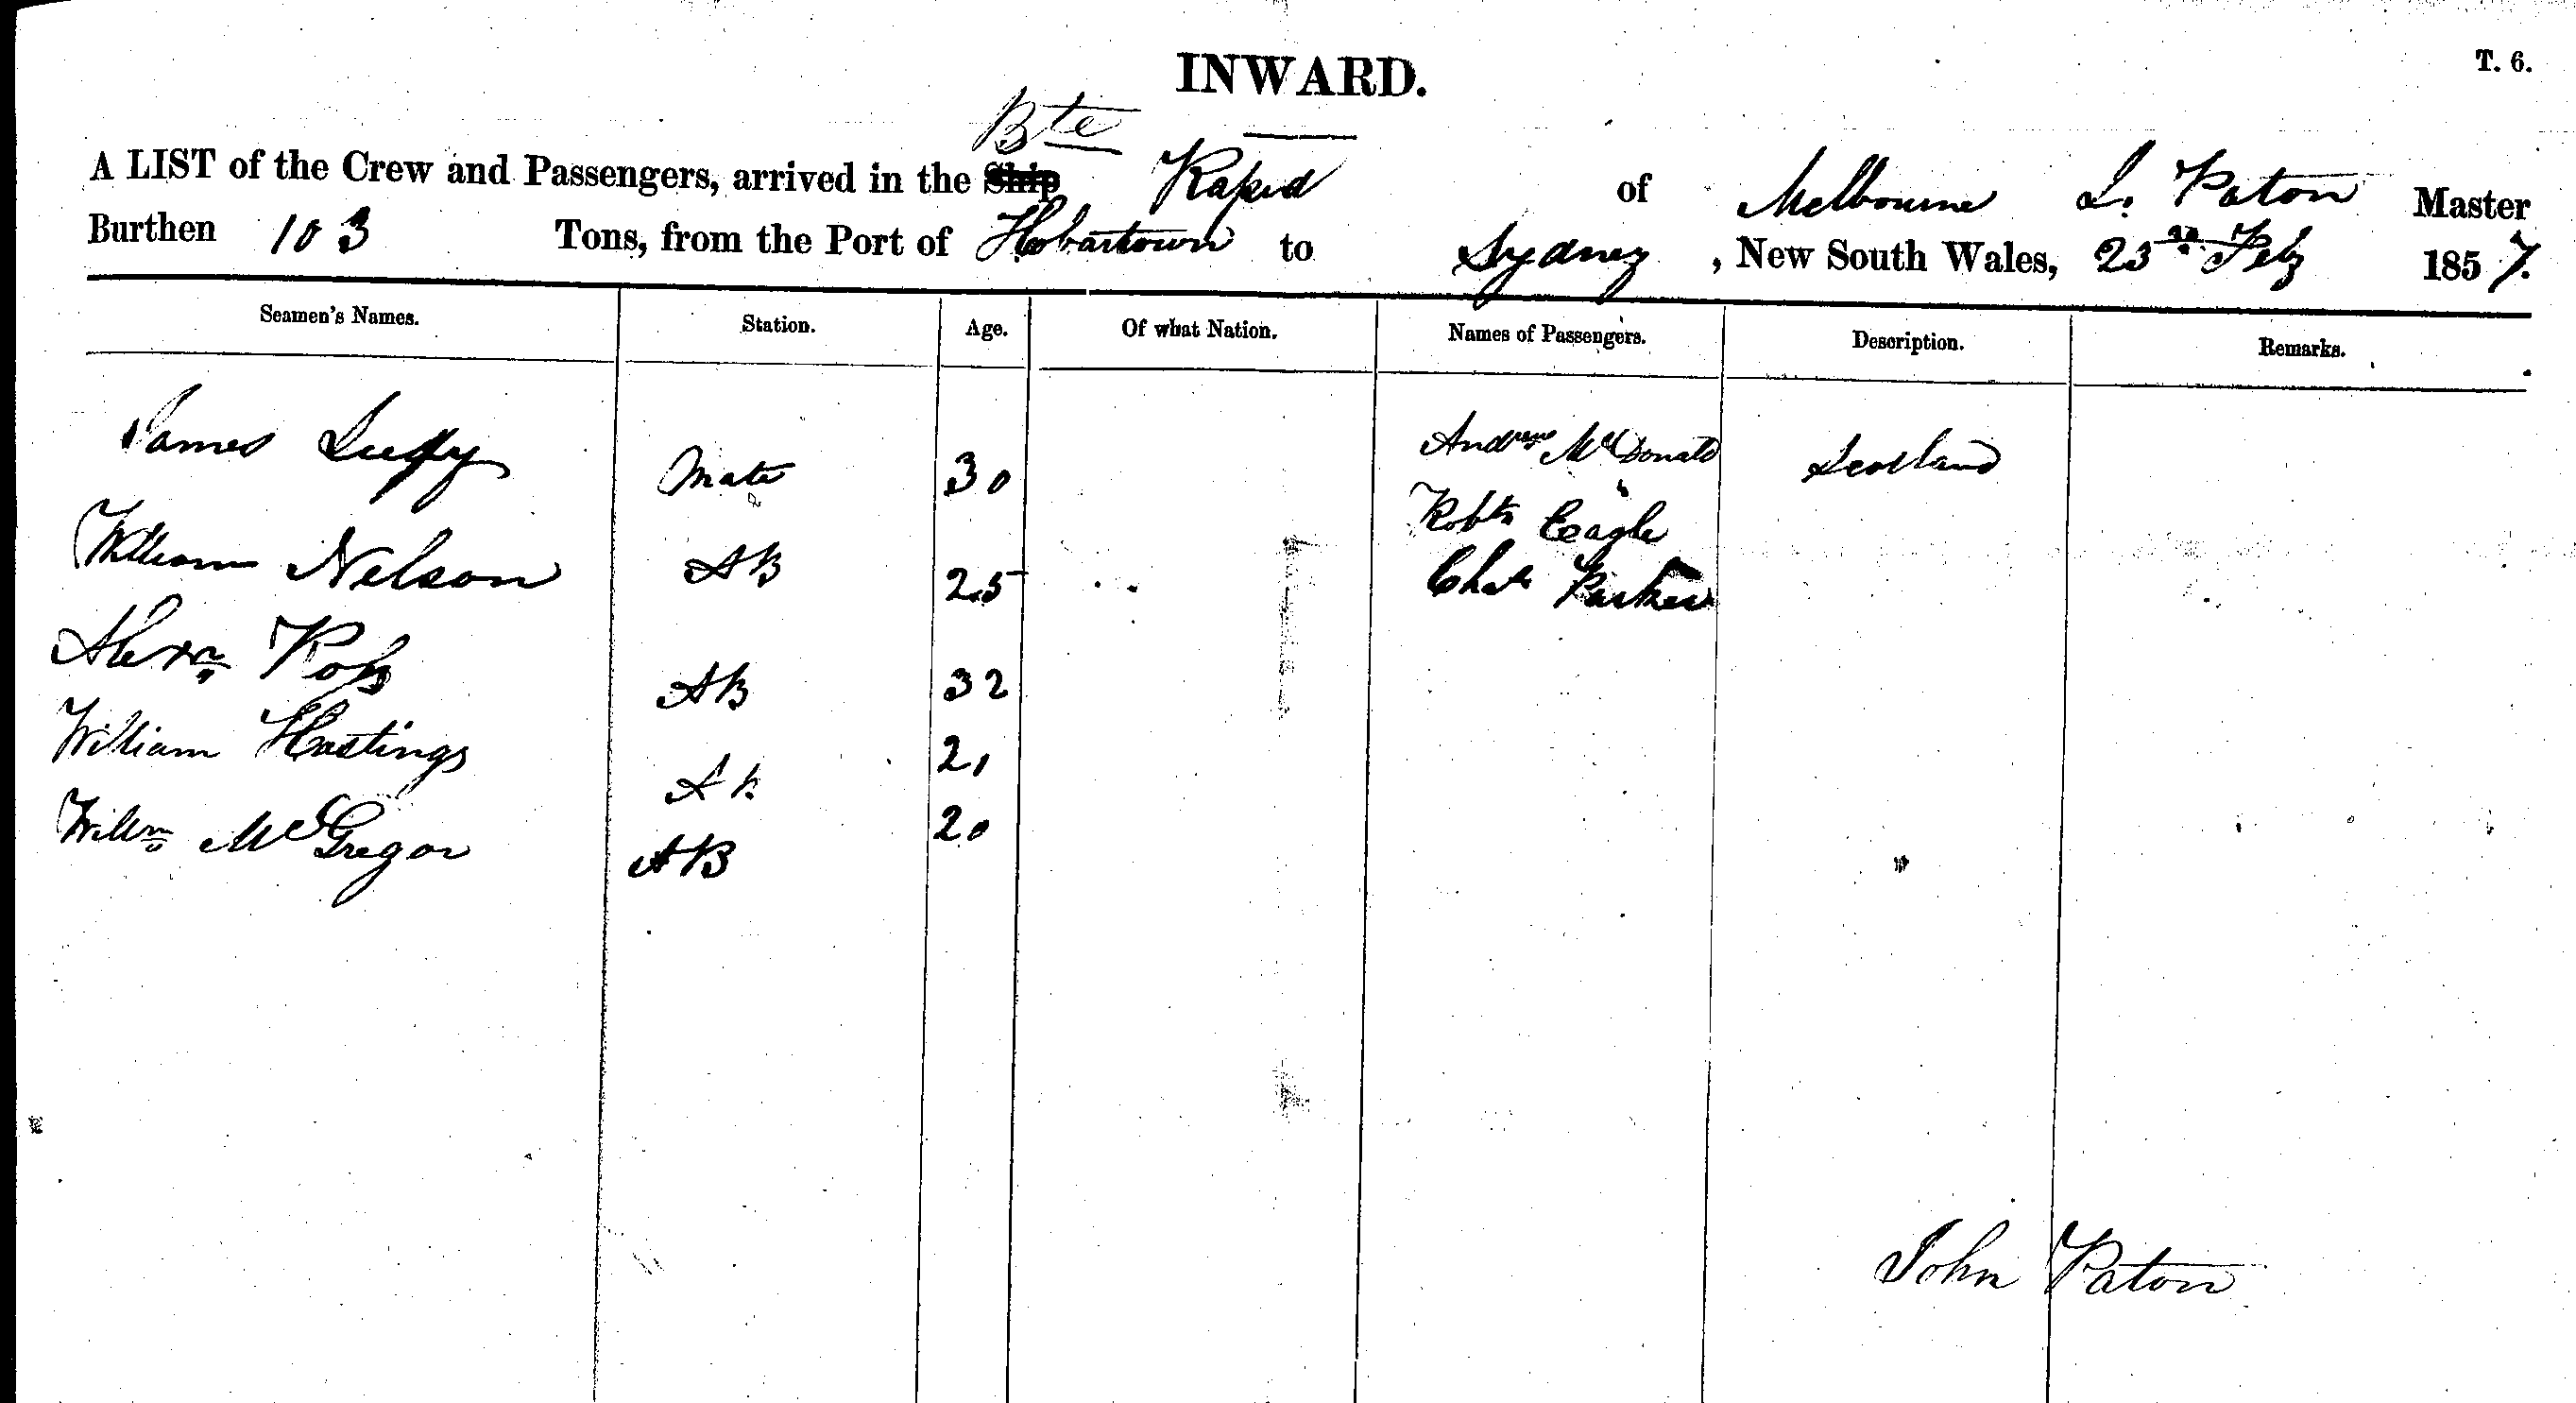 INWARD.
T. 6.
Bte
A LIST of the Crew and Passengers, arrived in the Ship Rapid of Melbourne J. Paton Master
Burthen 103 Tons, from the Port of Hobartown to Sydney, New South Wales, 23rd Feby 1857.
Seamen's Names. Station. Age. Of what Nation. Names of Passengers. Description. Remarks.
James Mate 30 Andrew McDonald Scotland
William Nelson AB 25 Robt Eagle
Chas Parker
Alexr Ross AB 32
William Hastings AB 21
Willm McGregor AB 20
John Paton